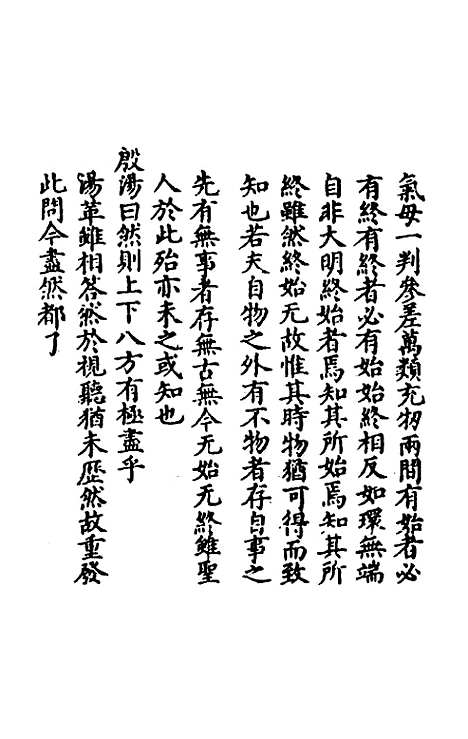 氣母一判參差萬類充牣兩間有始者必
有終有終者必有始始終相反如環無端
自非大明終始者焉知其所始焉知其所
終雖然終始无故惟其時物猶可得而致
知也若夫自物之外有不物者存自事之
先有無事者存無古無今无始无終雖聖
人於此殆亦未之或知也
殷湯曰然則上下八方有極盡乎
湯革雖相答然於視聽猶未歷然故重發
此問今盡然都了